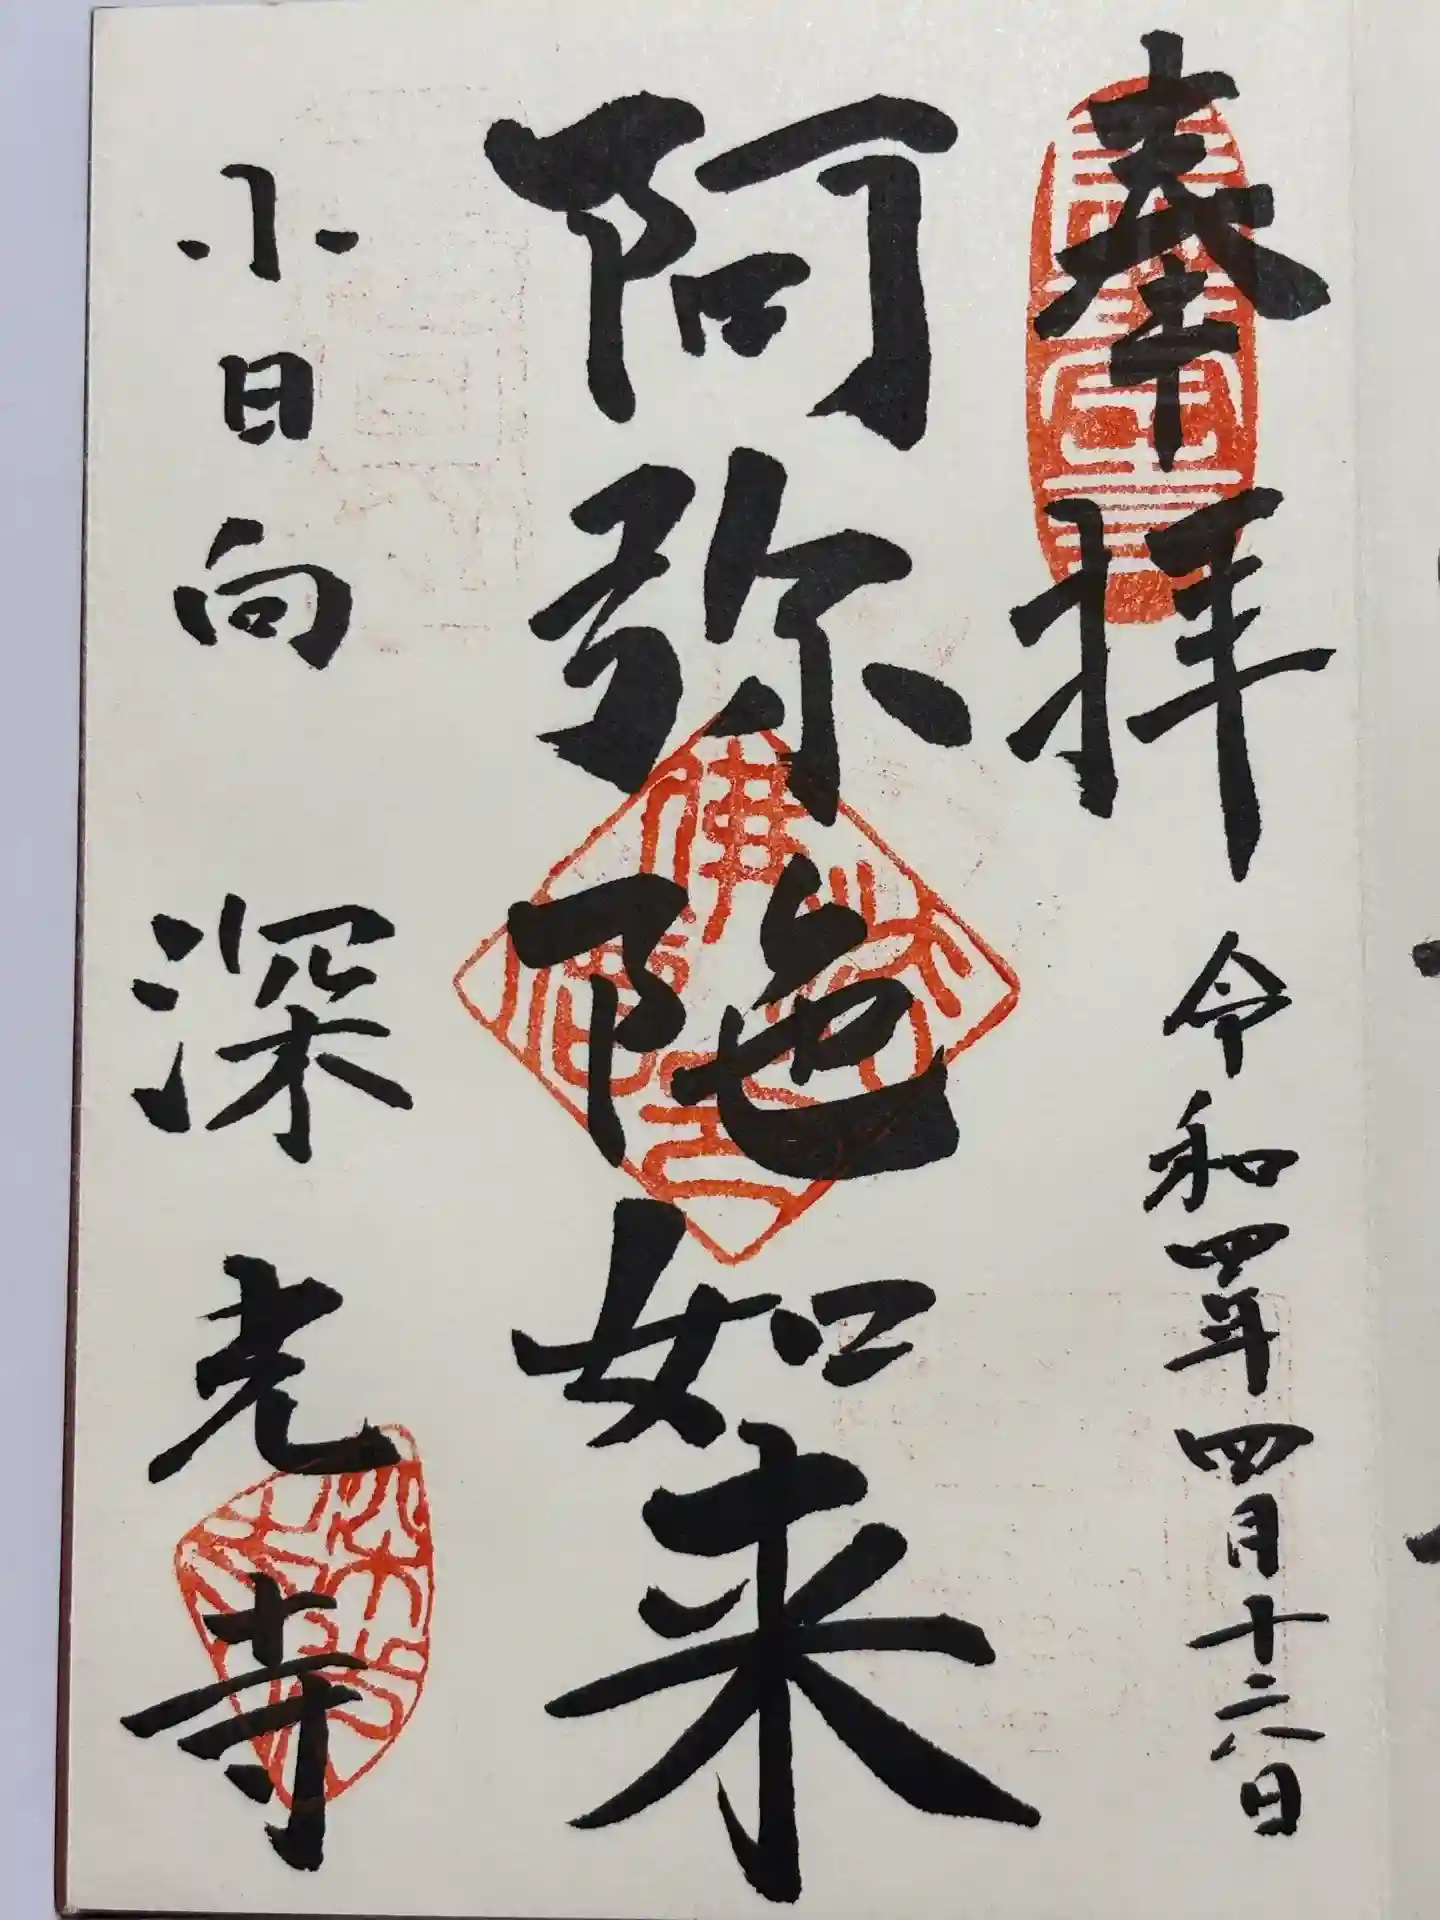 奉拝 令和四年四月十六日
阿弥陀如来
小日向 深光寺